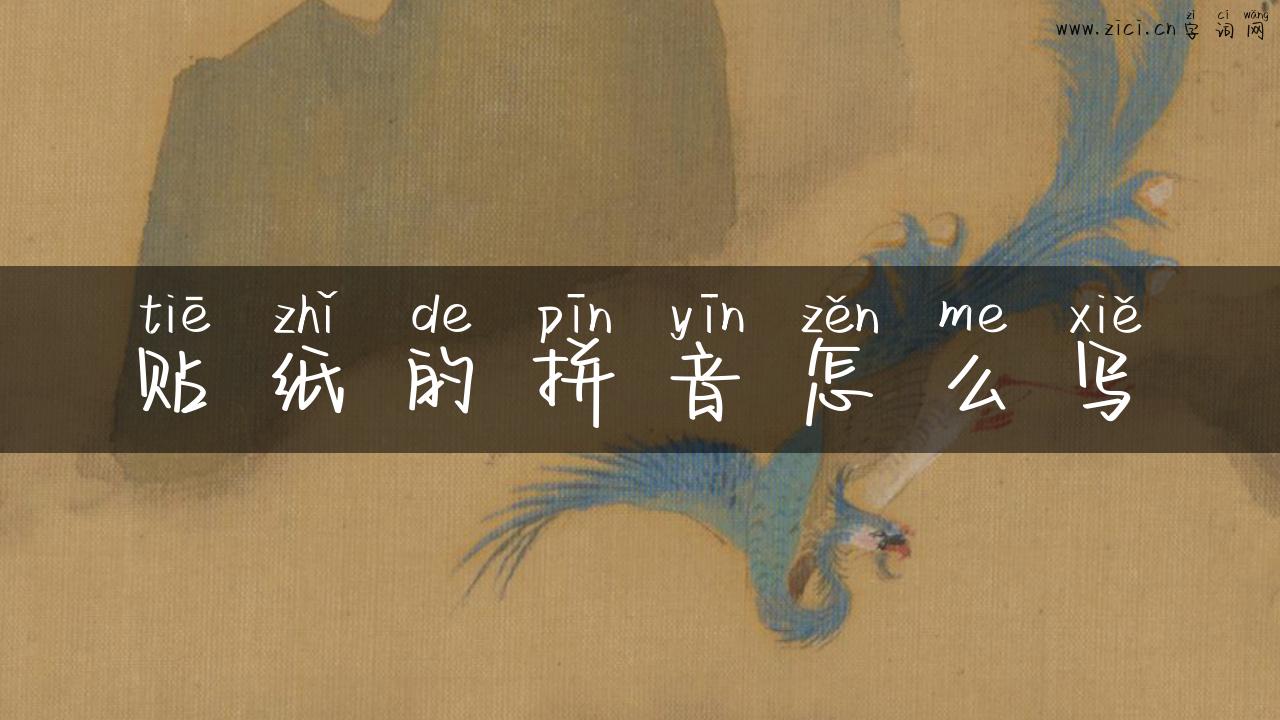 zì cí wǎng
www.zici.cn 字词网
tiē zhǐ de pīn yīn zěn me xiě
贴纸的拼音怎么写